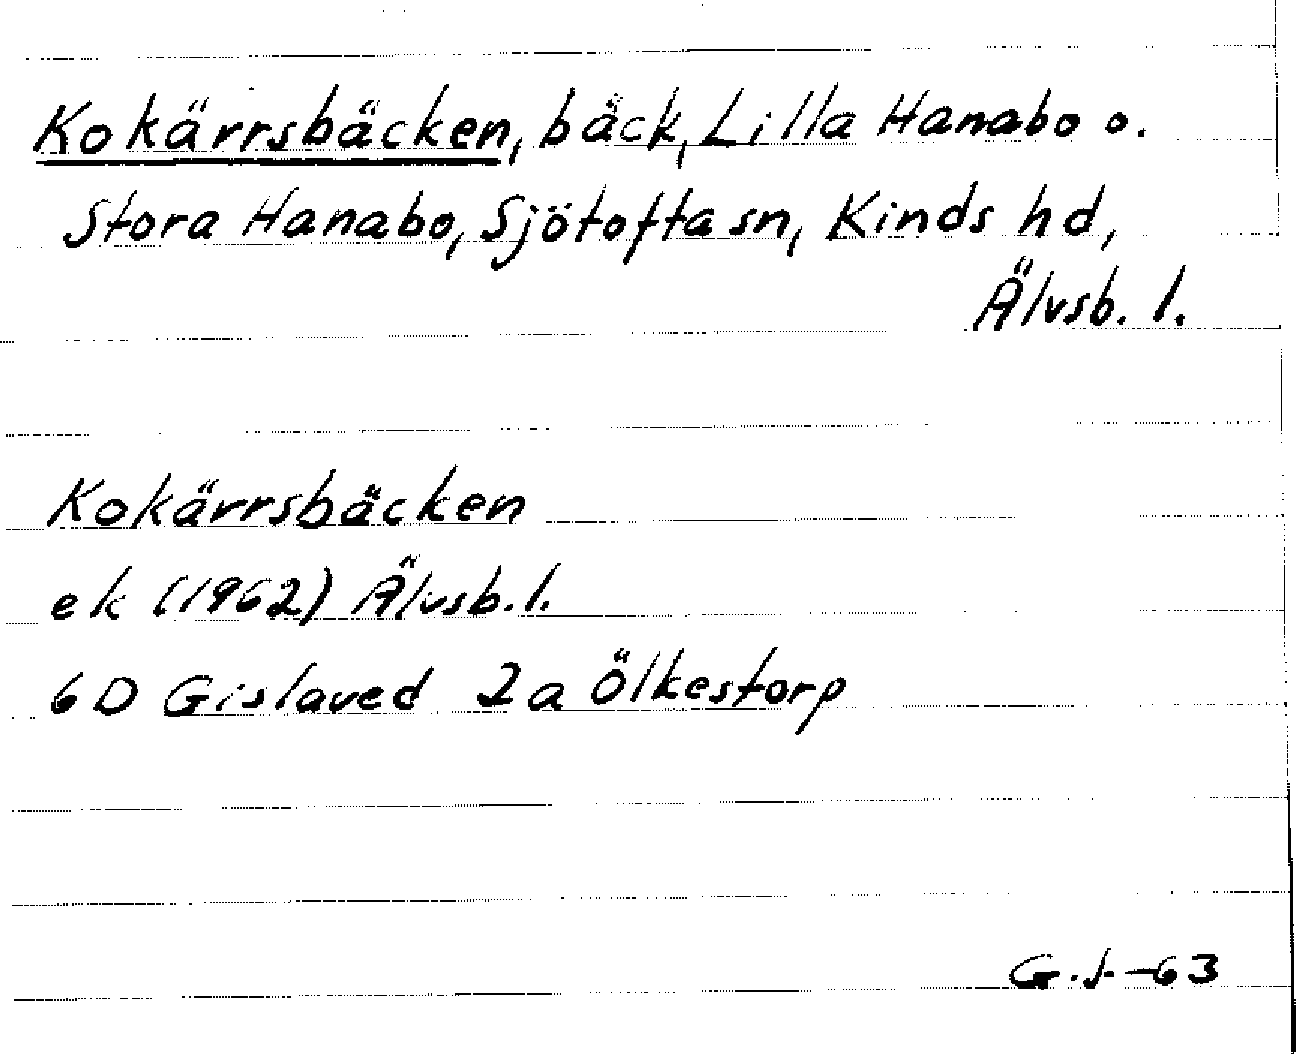 Kokärrsbäcken, bäck, Lilla Hanabo o.
Stora Hanabo, Sjötofta sn, Kinds hd,
Älvsb. l.
Kokärrsbäcken
ek (1962) Älvsb. l.
6D Gislaved 2a Ölkestorp
-63